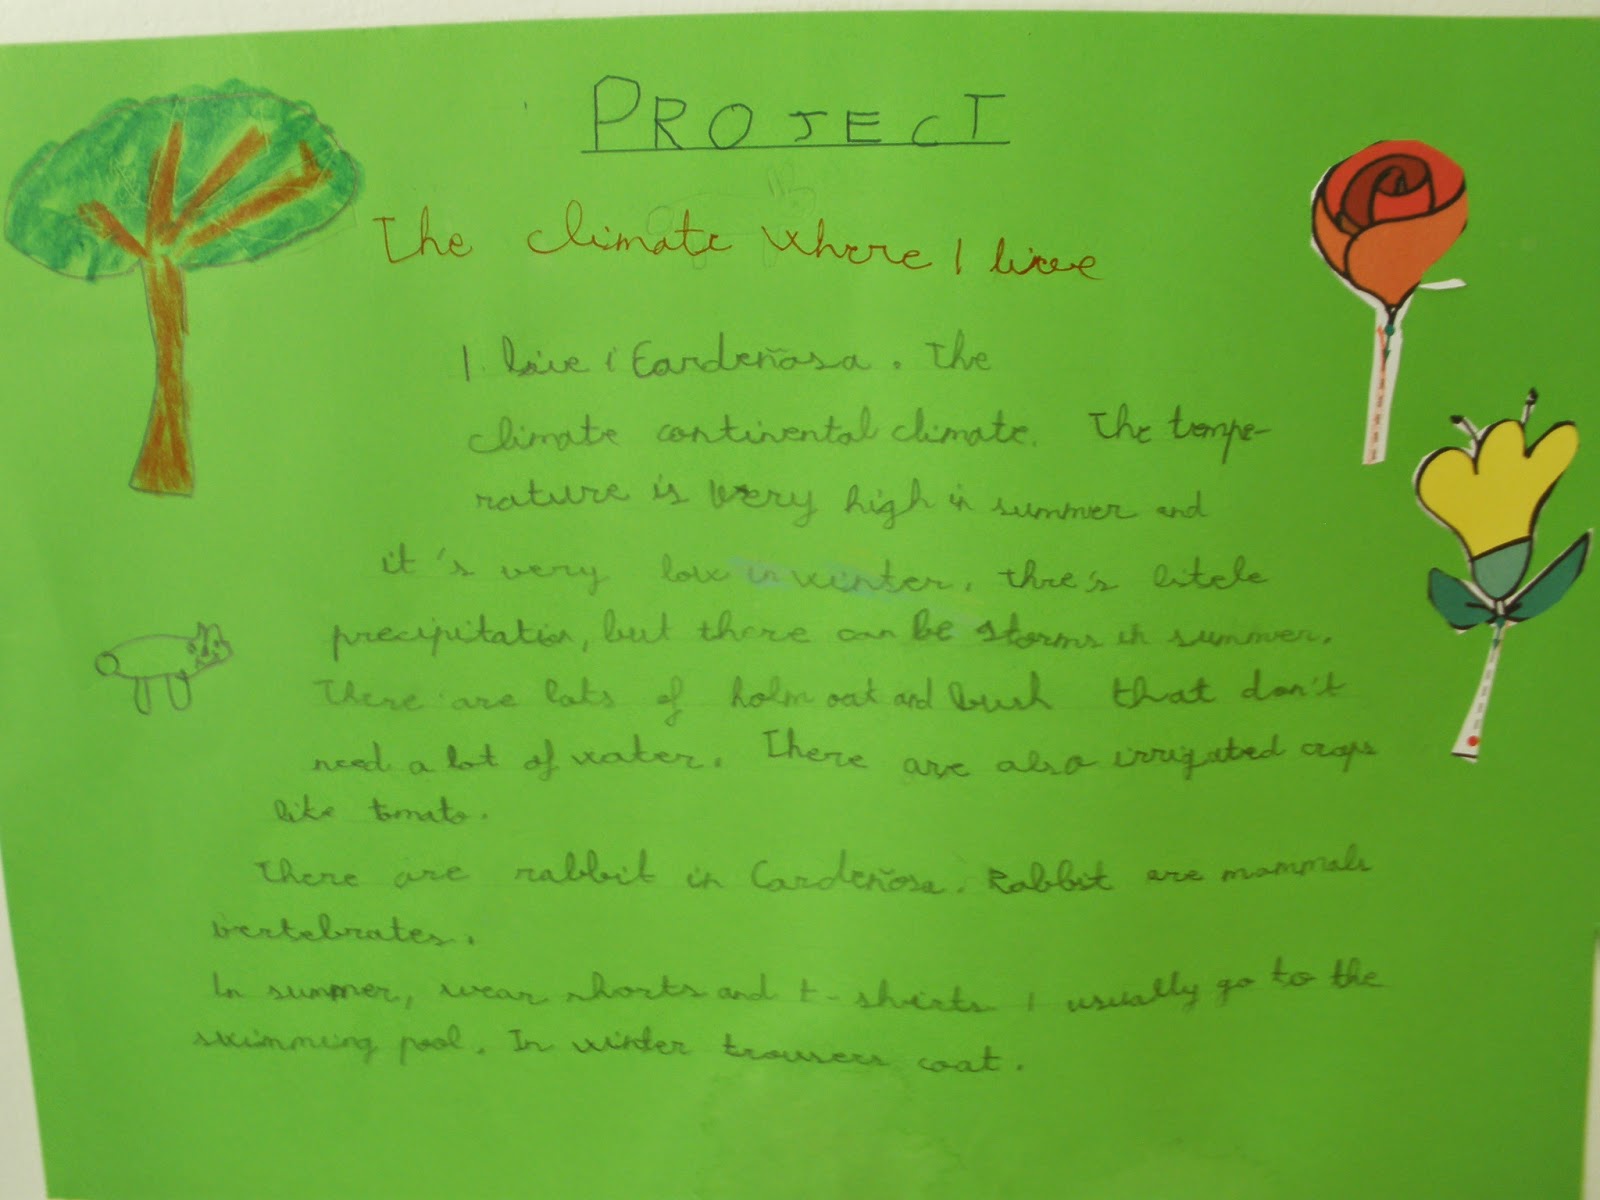 PROJECT
The climate where I live
I live i Cardeñosa. The
climate continental climate. The tempe-
rature is very high in summer and
it's very low in winter. Thre's litele
precipitation, but there can be storms in summer.
There are lots of holm oat and bush that don't
need a lot of water. There are also irrigated crops
like tomato.
There are rabbit in Cardeñosa. Rabbit are mammals
vertebrates.
In summer, wear shorts and t-shirts I usually go to the
swimming pool. In winter trousers coat.